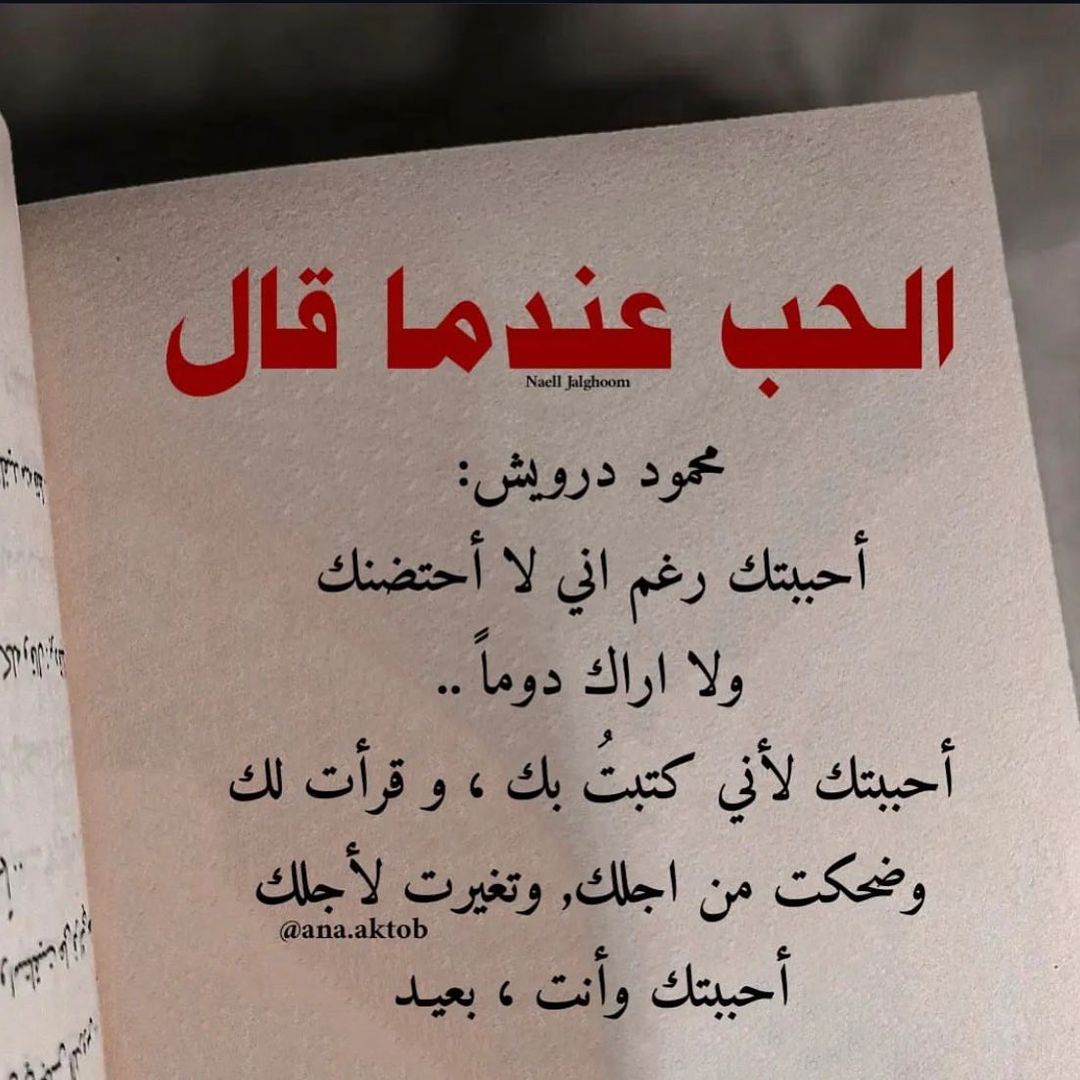 الحب عندما قال
Naell Jalghoom
محمود درويش:
أحببتك رغم اني لا أحتضنك
ولا اراك دوماً ..
أحببتك لأني كتبتُ بك ، و قرأت لك
وضحكت من اجلك, وتغيرت لأجلك
@ana.aktob
أحببتك وأنت ، بعيد